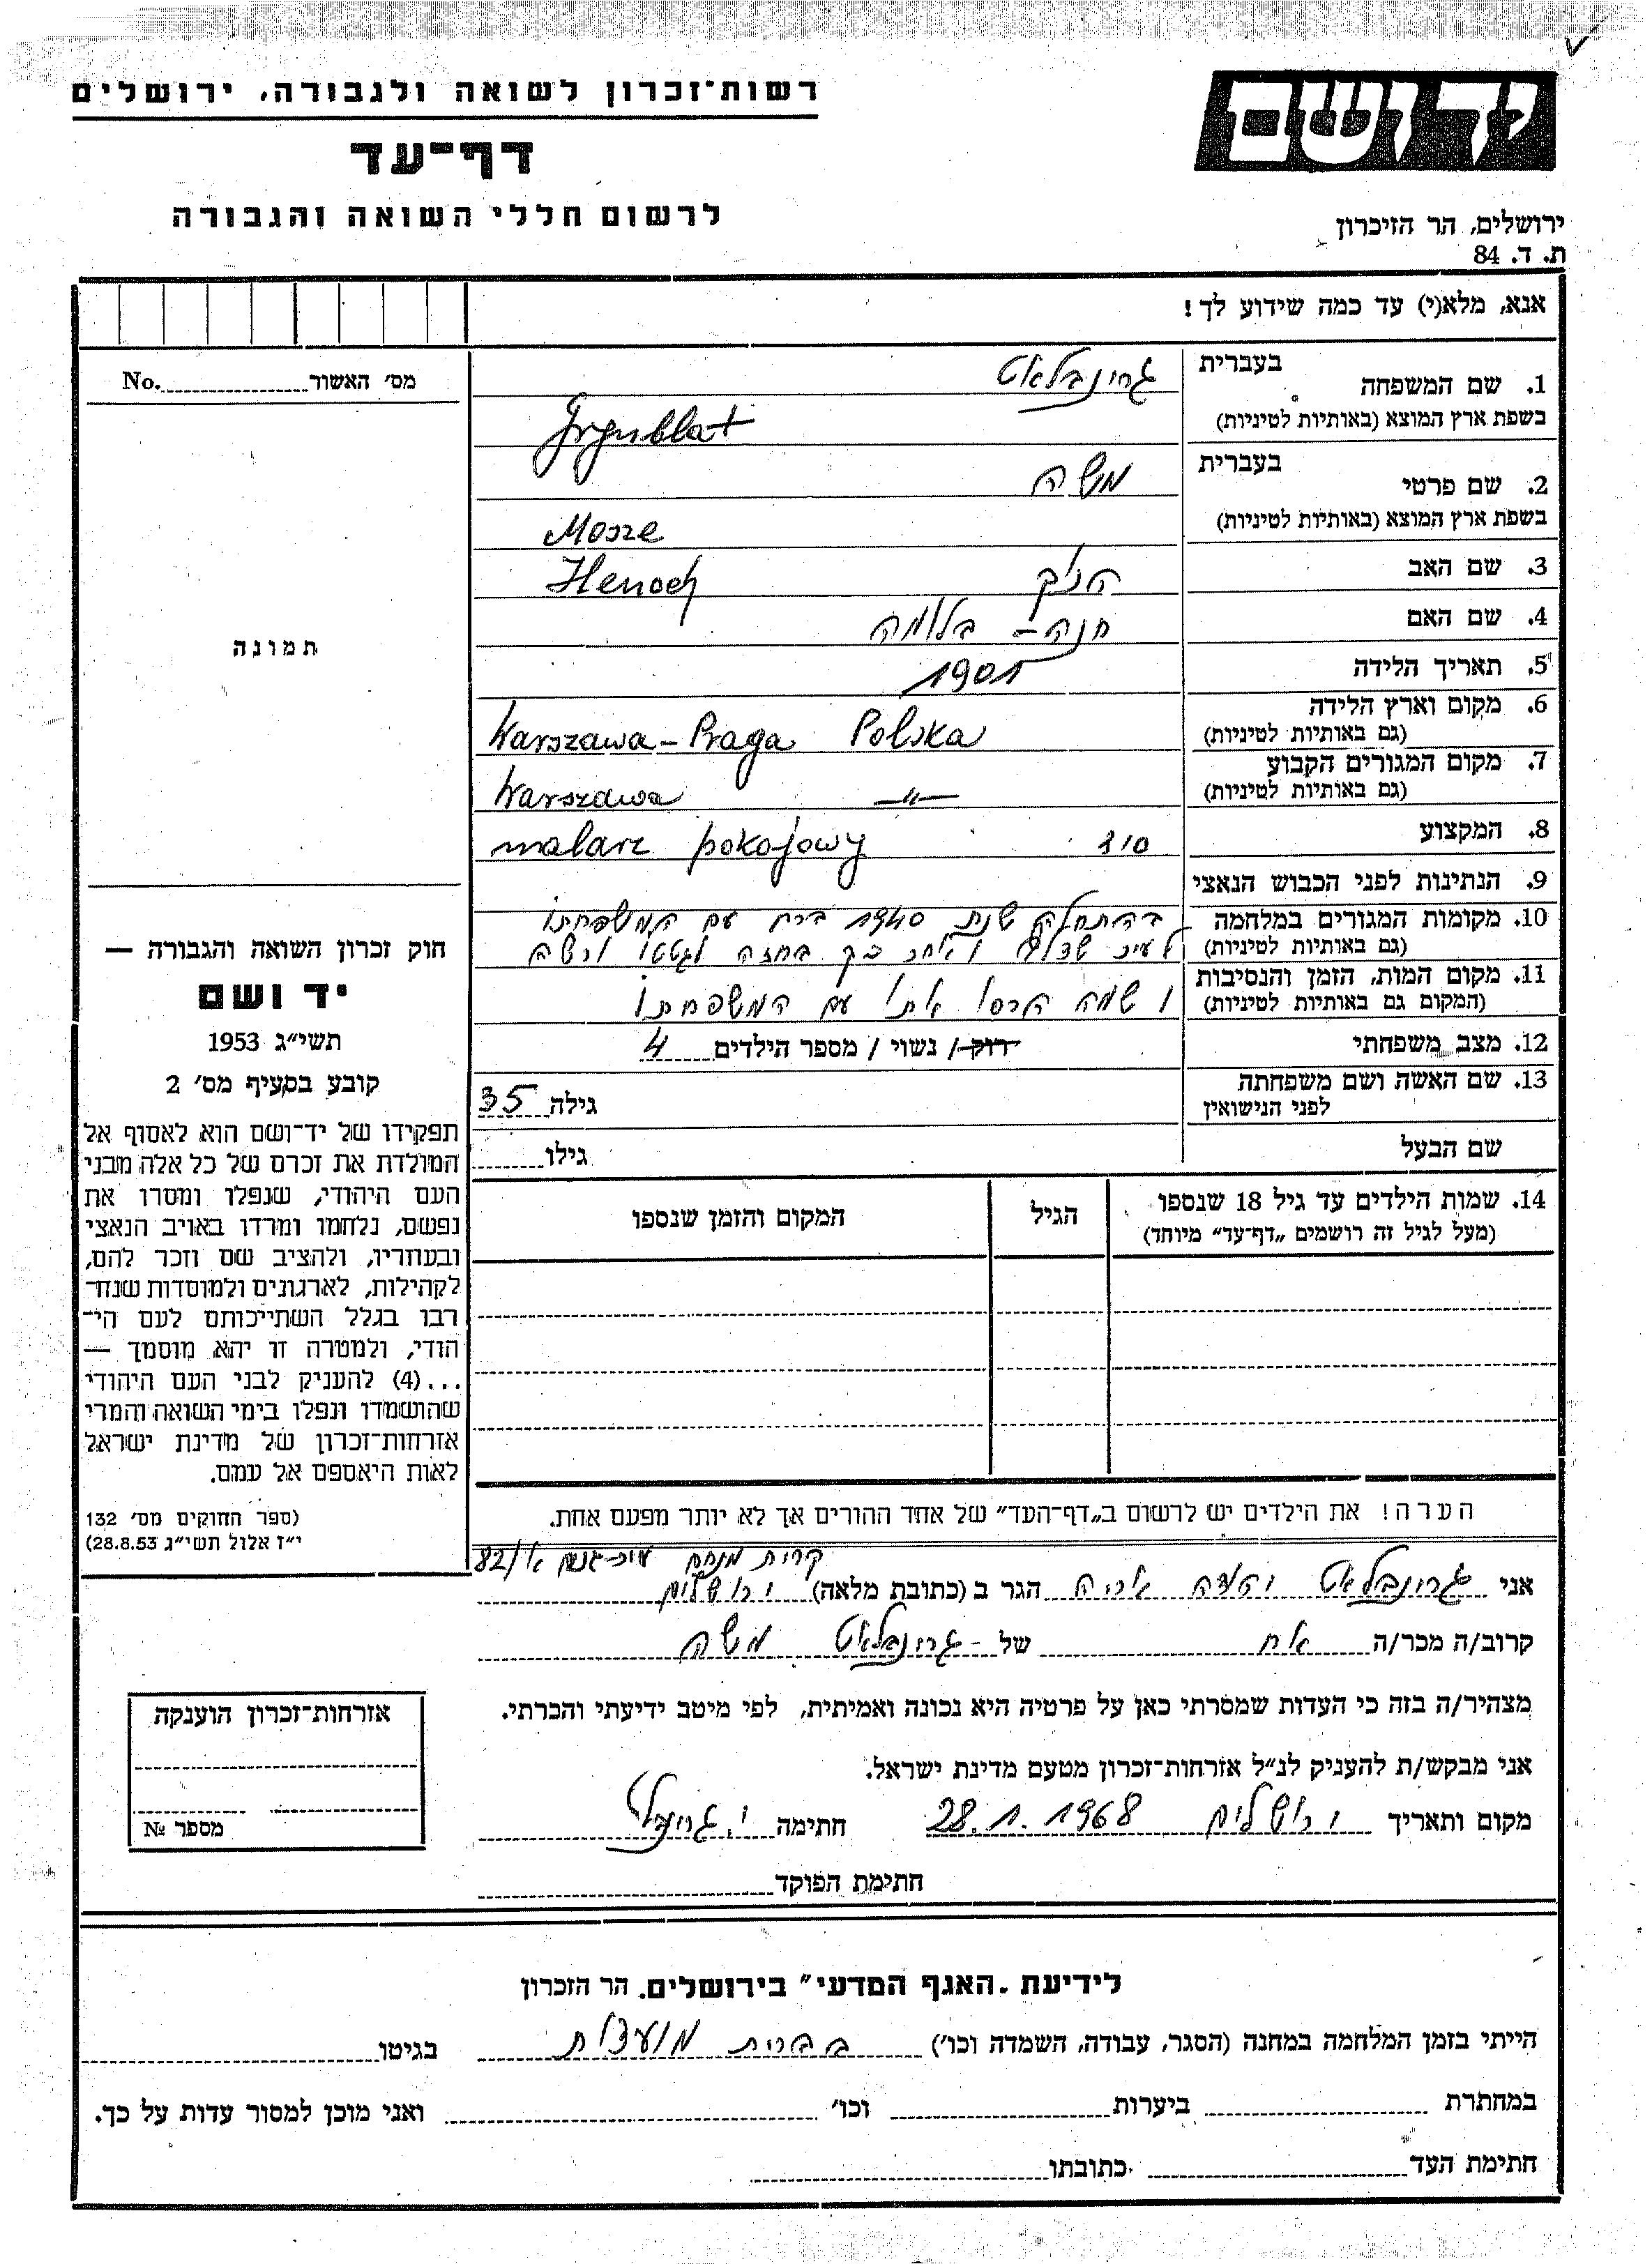 רשות־זכרון לשואה ולגבורה, ירושלים
דף־עד
לרשום חללי השואה והגבורה
יד ושם
ירושלים, הר הזיכרון
ת. ד. 84
אנא, מלא(י) עד כמה שידוע לך!
מס׳ האשור No.
תמונה
1. שם המשפחה בעברית גרינבלאט
בשפת ארץ המוצא (באותיות לטיניות) Grynblat
2. שם פרטי בעברית משה
בשפת ארץ המוצא (באותיות לטיניות) Mosze
3. שם האב הניך Henoch
4. שם האם חנה - בלומה
5. תאריך הלידה 1901
6. מקום וארץ הלידה Warszawa - Praga Polska
(גם באותיות לטיניות)
7. מקום המגורים הקבוע Warszawa —"—
(גם באותיות לטיניות)
8. המקצוע malarz pokojowy
9. הנתינות לפני הכבוש הנאצי
10. מקומות המגורים במלחמה בהתחלת שנת 1940 ברח עם המשפחתו
(גם באותיות לטיניות) לעיר ואחר כך בחזרה לגטטו ורשה
11. מקום המות, הזמן והנסיבות ו שמה הרסו אתו עם המשפחתו
(המקום גם באותיות לטיניות)
12. מצב משפחתי רווק / נשוי / מספר הילדים 4
13. שם האשה ושם משפחתה גילה 35
לפני הנישואין
שם הבעל גילו
14. שמות הילדים עד גיל 18 שנספו הגיל המקום והזמן שנספו
(מעל לגיל זה רושמים „דף־עד״ מיוחד)
הערה! את הילדים יש לרשום ב„דף־העד״ של אחד ההורים אך לא יותר מפעם אחת.
חוק זכרון השואה והגבורה —
יד ושם
תשי״ג 1953
קובע בסעיף מס׳ 2
תפקידו של יד־ושם הוא לאסוף אל
המולדת את זכרם של כל אלה מבני
העם היהודי, שנפלו ומסרו את
נפשם, נלחמו ומרדו באויב הנאצי
ובעוזריו, ולהציב שם וזכר להם,
לקהילות, לארגונים ולמוסדות שנח־
רבו בגלל השתייכותם לעם הי־
הודי, ולמטרה זו יהא מוסמך —
...(4) להעניק לבני העם היהודי
שהושמדו ונפלו בימי השואה והמרי
אזרחות־זכרון של מדינת ישראל
לאות היאספם אל עמם.
(ספר החוקים מס׳ 132
י״ז אלול תשי״ג 28.8.53)
קרית מנחם עיר-גנים א/82
אני גרינבלאט יהודה אריה הגר ב (כתובת מלאה) ירושלים
קרוב/ה מכר/ה אח של גרינבלאט משה
מצהיר/ה בזה כי העדות שמסרתי כאן על פרטיה היא נכונה ואמיתית, לפי מיטב ידיעתי והכרתי.
אני מבקש/ת להעניק לנ״ל אזרחות־זכרון מטעם מדינת ישראל.
מקום ותאריך ירושלים 28.1.1968 חתימה
חתימת הפוקד
אזרחות־זכרון הוענקה
מספר №
לידיעת „האגף המדעי״ בירושלים, הר הזכרון
הייתי בזמן המלחמה במחנה (הסגר, עבודה, השמדה וכו׳) בברית מועצות בגיטו
במחתרת ביערות וכו׳ ואני מוכן למסור עדות על כך.
חתימת העד כתובתו